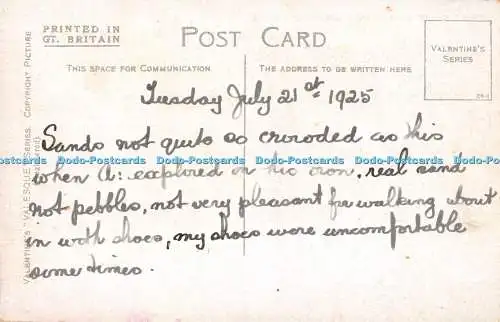 PRINTED IN
GT. BRITAIN
POST CARD
VALENTINE'S
SERIES
THIS SPACE FOR COMMUNICATION.
THE ADDRESS TO BE WRITTEN HERE
VALENTINE'S "VALESQUE" SERIES. COPYRIGHT PICTURE
Tuesday July 21st 1925
Sands not quite so crowded as this
Dodo-Postcards Dodo-Postcards Dodo-Postcards Dodo-Postcards Dodo-Postcards Dodo-Postcards Dodo-Postcards
when A: explored on his own, real sand
not pebbles, not very pleasant for walking about
in with shoes, my shoes were uncomfortable
some times.